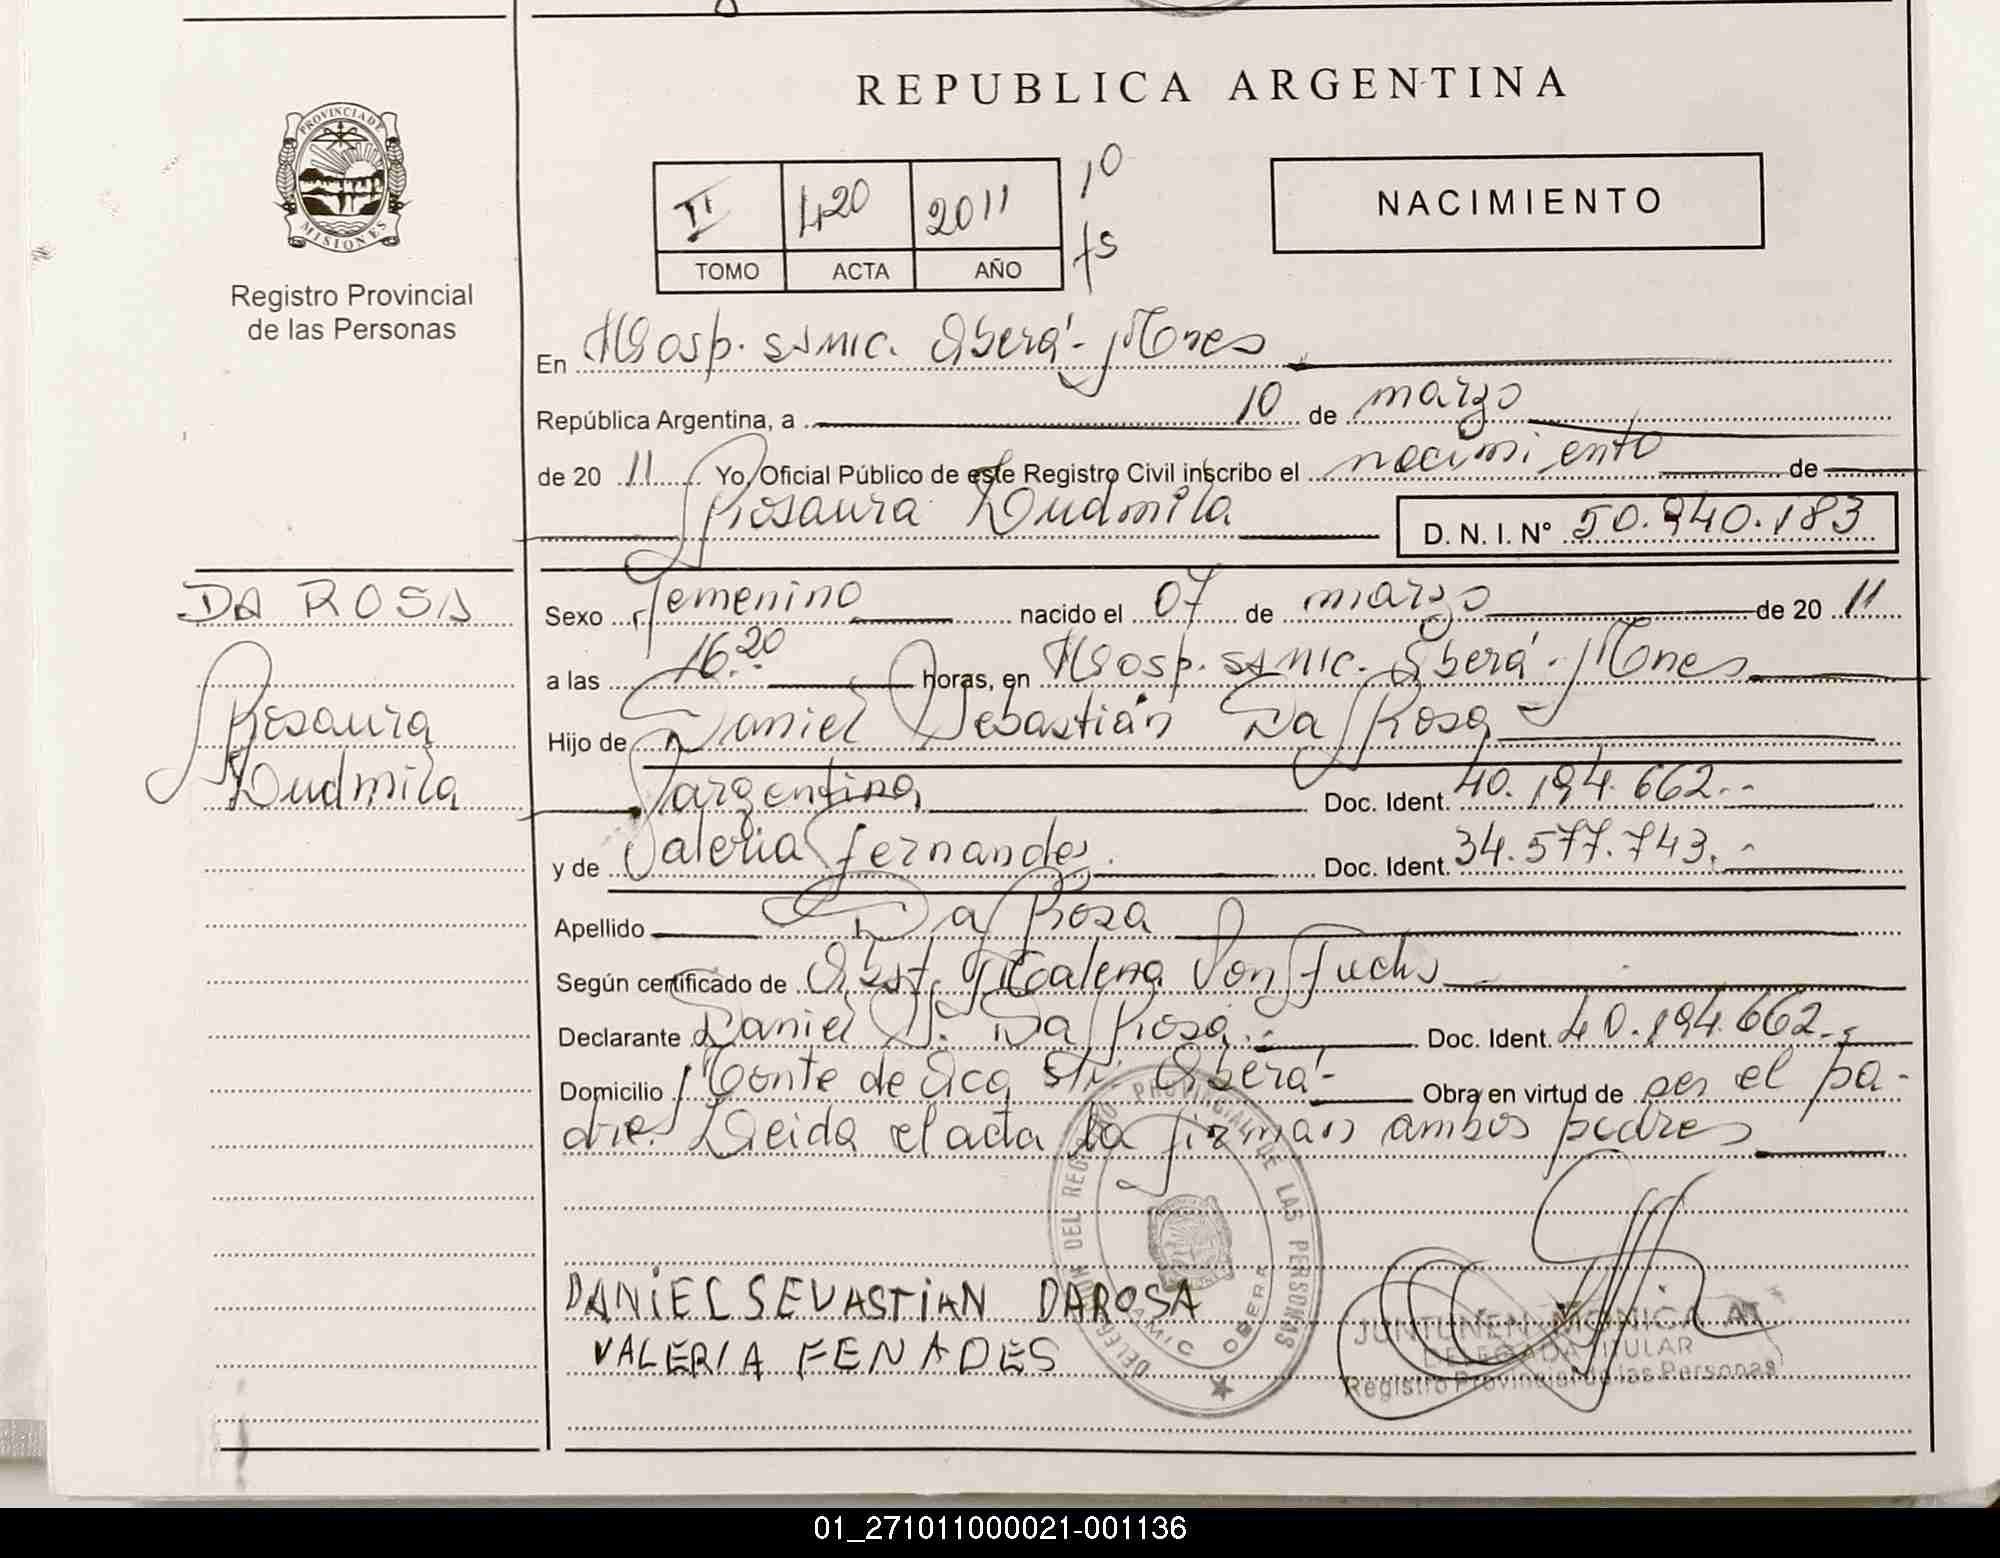 REPUBLICA ARGENTINA
PROVINCIA DE
MISIONES
Registro Provincial
de las Personas
II 420 2011 10
TOMO ACTA AÑO fs
NACIMIENTO
En Hosp. SAMIC. Oberá - Mnes
República Argentina, a 10 de marzo
de 20 11 Yo, Oficial Público de este Registro Civil inscribo el nacimiento de
Rosaura Ludmila D. N. I. Nº 50.940.183
DA ROSA
Rosaura
Ludmila
Sexo Femenino nacido el 07 de marzo de 20 11
a las 16.20 horas, en Hosp. SAMIC. Oberá - Mnes
Hijo de Daniel Sebastián Da Rosa
argentina Doc. Ident. 40.194.662.-
y de Valeria Fernandes. Doc. Ident. 34.577.743.-
Apellido Da Rosa
Según certificado de Obst. Von Fuchs
Declarante Daniel S. Da Rosa.- Doc. Ident. 40.194.662.-
Domicilio Monte de Oberá- Obra en virtud de ser el pa-
dre. Leida el acta la firman ambos padres
DANIEL SEVASTIAN DAROSA
VALERIA FENADES
DELEGACION DEL REGISTRO PROVINCIAL DE LAS PERSONAS
SAMIC OBERA
JUNTUNEN MONICA
DELEGADA TITULAR
Registro Provincial de las Personas
01_271011000021-001136